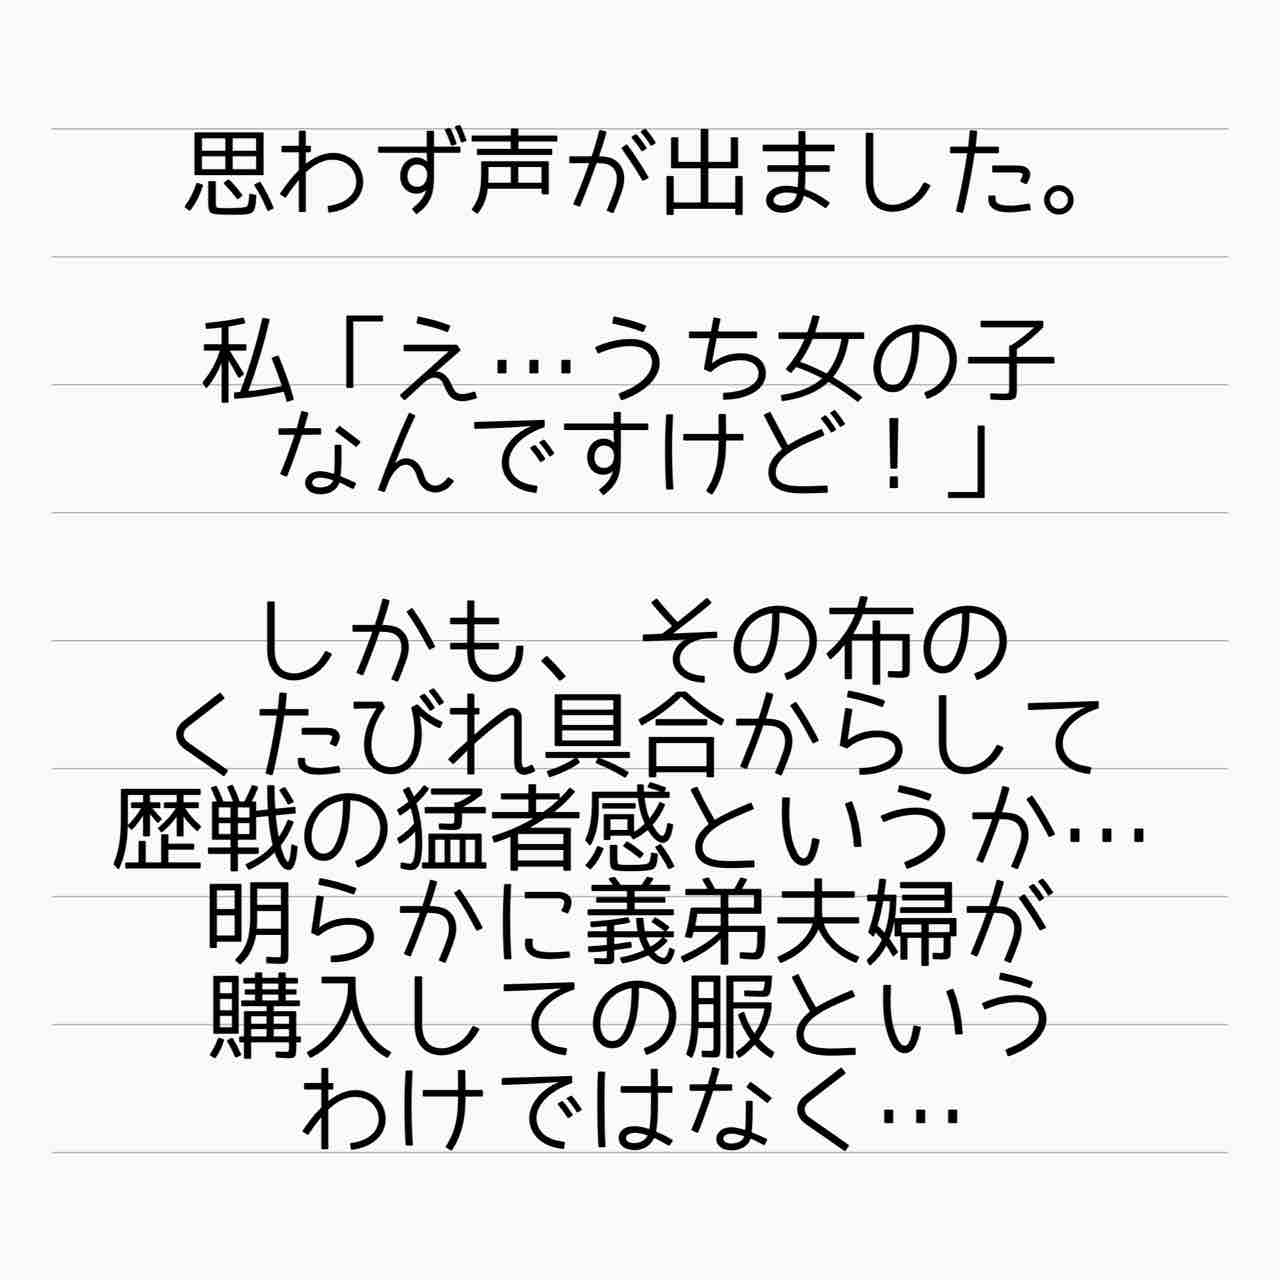 思わず声が出ました。
私「え…うち女の子
なんですけど！」
しかも、その布の
くたびれ具合からして
歴戦の猛者感というか…
明らかに義弟夫婦が
購入しての服という
わけではなく…